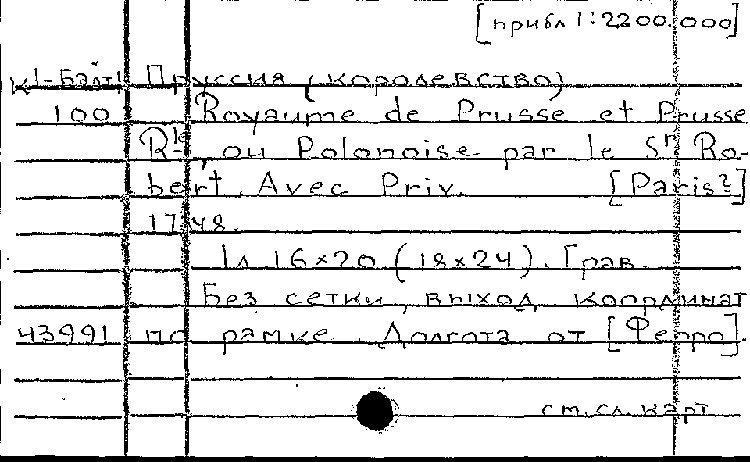 [прибл 1:2200.000]
К1-Балт1 Пруссия (королевство)
100 Royaume de Prusse et Prusse
Rle, ou Polonoise par le Sr Ro-
bert. Avec Priv. [Paris?]
1748.
1л 16×20 (18×24). Грав.
Без сетки, выход координат
43991 по рамке. Долгота от [Ферро].
см. сл. карт